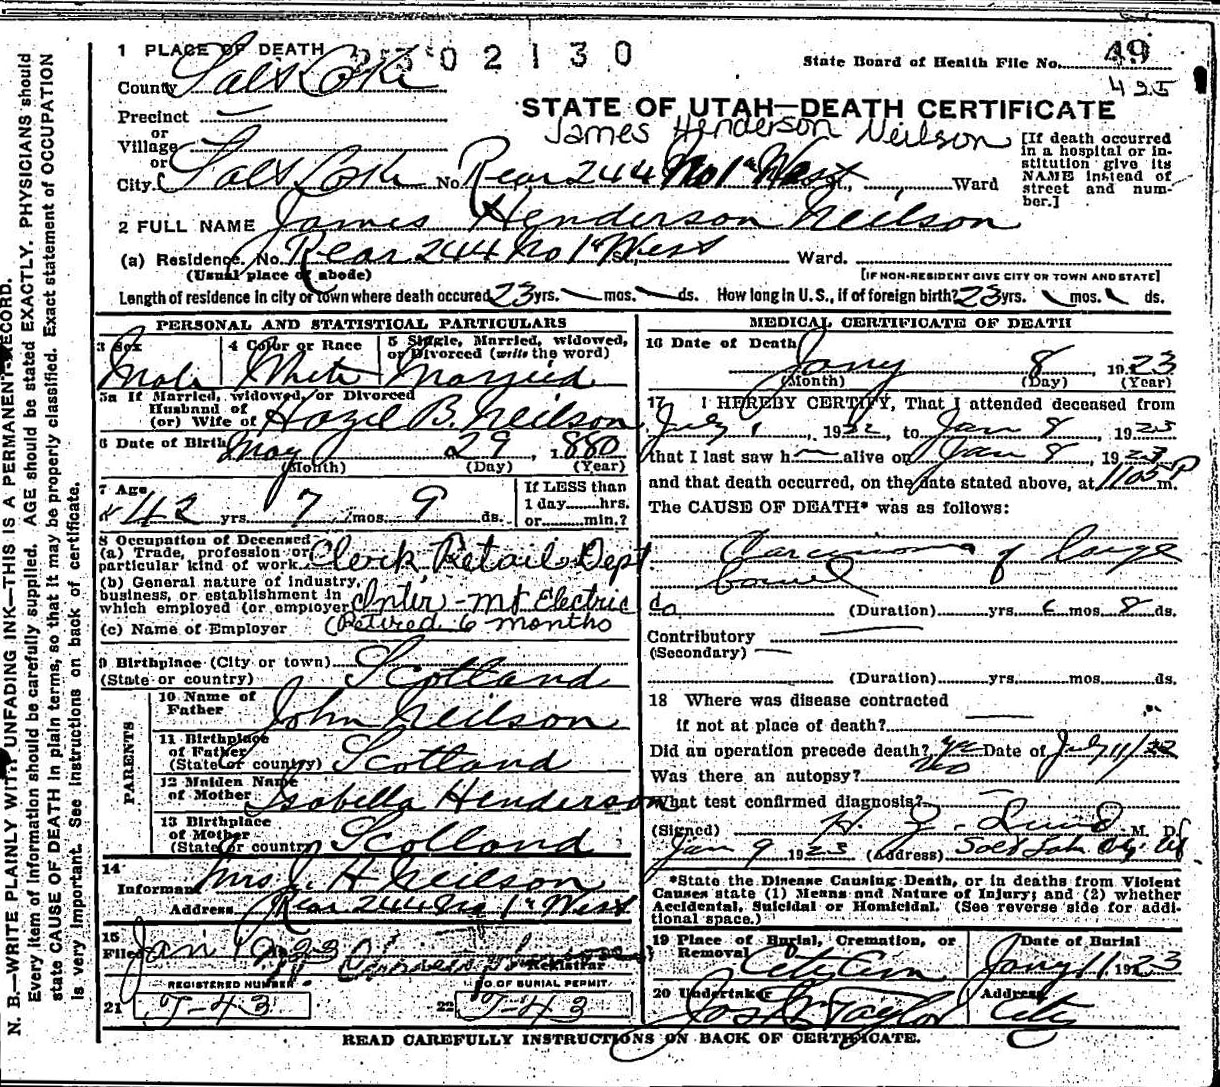 N. B.—WRITE PLAINLY WITH UNFADING INK—THIS IS A PERMANENT RECORD.
Every item of information should be carefully supplied. AGE should be stated EXACTLY. PHYSICIANS should
state CAUSE OF DEATH in plain terms, so that it may be properly classified. Exact statement of OCCUPATION
is very important. See instructions on back of certificate.
1 PLACE OF DEATH 2302130
State Board of Health File No. 49
495
County Salt Lake
STATE OF UTAH—DEATH CERTIFICATE
Precinct
or
Village
James Henderson Neilson
[If death occurred in a hospital or institution give its NAME instead of street and number.]
or
City Salt Lake No. Rear 244 No 1st West St., Ward
2 FULL NAME James Henderson Neilson
(a) Residence. No. Rear 244 No 1st West St., Ward.
(Usual place of abode) [IF NON-RESIDENT GIVE CITY OR TOWN AND STATE]
Length of residence in city or town where death occured 23 yrs. mos. ds. How long in U. S., if of foreign birth? 23 yrs. mos. ds.
PERSONAL AND STATISTICAL PARTICULARS
3 Sex 4 Color or Race 5 Single, Married, widowed, or Divorced (write the word)
Male White Married
5a If Married, widowed, or Divorced
Husband of
(or) Wife of Hazel B. Neilson
6 Date of Birth May 29, 1880
(Month) (Day) (Year)
7 Age 42 yrs 7 mos. 9 ds.
If LESS than
1 day hrs.
or min.?
8 Occupation of Deceased
(a) Trade, profession or particular kind of work Clerk Retail Dept
(b) General nature of industry, business, or establishment in which employed (or employer) Inter-Mt Electric
(c) Name of Employer (Retired 6 months
9 Birthplace (City or town)
(State or country) Scotland
PARENTS
10 Name of Father John Neilson
11 Birthplace of Father (State or country) Scotland
12 Maiden Name of Mother Isabella Henderson
13 Birthplace of Mother (State or country) Scotland
14
Informant Mrs J. H Neilson
Address Rear 244 No 1st West
15
Filed Jan 1923
Registrar
REGISTERED NUMBER NO. OF BURIAL PERMIT
21 J-43 22 J-43
MEDICAL CERTIFICATE OF DEATH
16 Date of Death Jany 8 1923
(Month) (Day) (Year)
17 I HEREBY CERTIFY, That I attended deceased from
July 1, 1922, to Jan 8, 1923
that I last saw h alive on Jan 8, 1923
and that death occurred, on the date stated above, at 1105 P m.
The CAUSE OF DEATH* was as follows:
Carcinoma of large
bowel
(Duration) yrs. 6 mos. 8 ds.
Contributory
(Secondary)
(Duration) yrs. mos. ds.
18 Where was disease contracted
if not at place of death?
Did an operation precede death? yes Date of July 11/22
Was there an autopsy? No
What test confirmed diagnosis?
(Signed) H. M. D.
Jan 9 1923 (Address) Salt Lake City Ut
*State the Disease Causing Death, or in deaths from Violent
Causes state (1) Means and Nature of Injury; and (2) whether
Accidental, Suicidal or Homicidal. (See reverse side for additional space.)
19 Place of Burial, Cremation, or Removal Date of Burial
City Cem Jany 11 1923
20 Undertaker Address
Jos Wm Taylor City
READ CAREFULLY INSTRUCTIONS ON BACK OF CERTIFICATE.